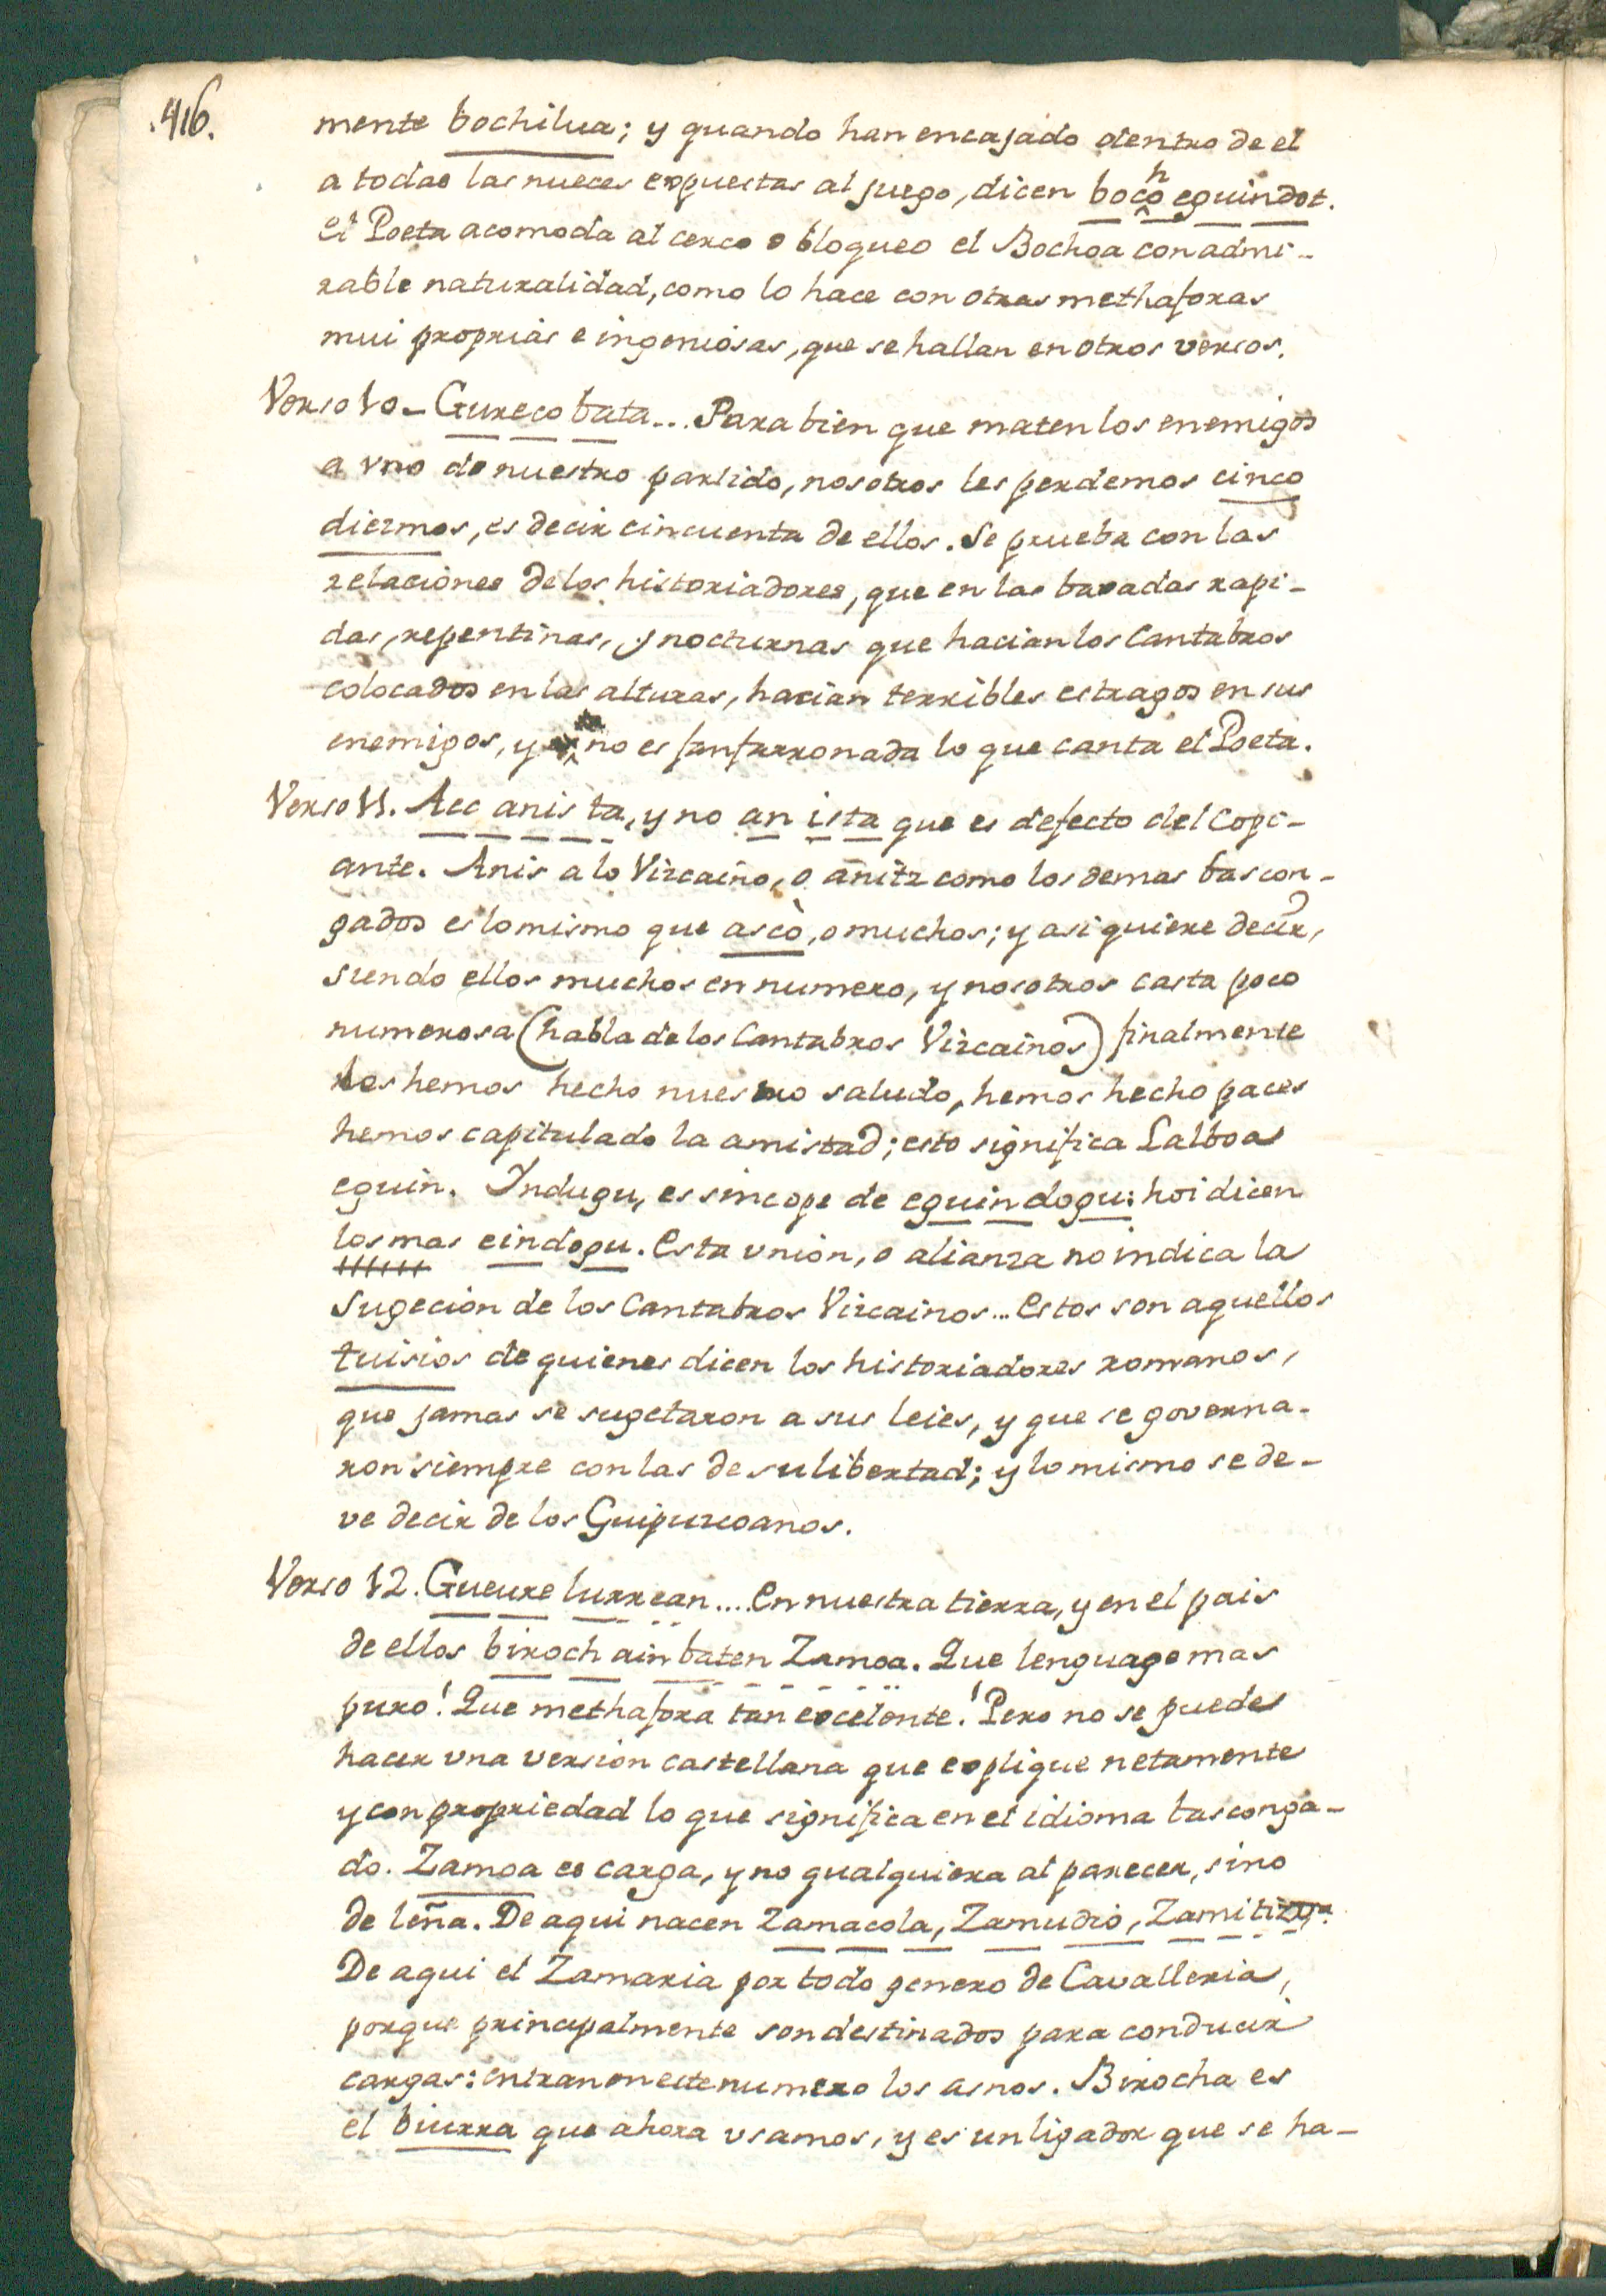 .416.
mente bochilua; y quando han encajado dentro de el
a todas las nueces expuestas al juego, dicen bocho eguindot.
el Poeta acomoda al cerco o bloqueo el Bochoa con admi-
rable naturalidad, como lo hace con otras methaforas
mui proprias e ingeniosas, que se hallan en otros versos.
Verso 10- Gureco bata... Para bien que maten los enemigos
a vno de nuestro partido, nosotros les perdemos cinco
diezmos, es decir cincuenta de ellos. Se prueba con las
relaciones de los historiadores, que en las baxadas rapi-
das, repentinas, y nocturnas que hacian los Cantabros
colocados en las alturas, hacian terribles estragos en sus
enemigos, y no es fanfarronada lo que canta el Poeta.
Verso 11. Aec anis ta, y no an ista que es defecto del Copi-
ante. Anis a lo Vizcaino, o anitz como los demas bascon-
gados es lo mismo que ascò, o muchos; y asi quiere decir,
siendo ellos muchos en numero, y nosotros casta poco
numerosa (habla de los Cantabros Vizcainos) finalmente
les hemos hecho nuestro saludo, hemos hecho paces
hemos capitulado la amistad; esto significa Lalboa
eguin. Indugu, es sincope de eguindogu: hoi dicen
los mas eindogu. Esta vnion, o alianza no indica la
Sugecion de los Cantabros Vizcainos... Estos son aquellos
tuisios de quienes dicen los historiadores romanos,
que jamas se sugetaron a sus leies, y que se governa-
ron siempre con las de su libertad; y lo mismo se de-
ve decir de los Guipuzcoanos.
Verso 12. Gueure lurrean.... En nuestra tierra, y en el pais
de ellos biroch ain baten Zamoa. Que lenguage mas
puro! Que methafora tan excelente! Pero no se puede
hacer vna version castellana que explique netamente
y con propriedad lo que significa en el idioma basconga-
do. Zamoa es carga, y no qualquiera al parecer, sino
de leña. De aqui nacen Zamacola, Zamudio, Zamitizya.
De aqui el Zamaria por todo genero de Cavalleria,
porque principalmente son destinados para conducir
cargas: entran en este numero los asnos. Birocha es
el biurra que ahora vsamos, y es un ligador que se ha-